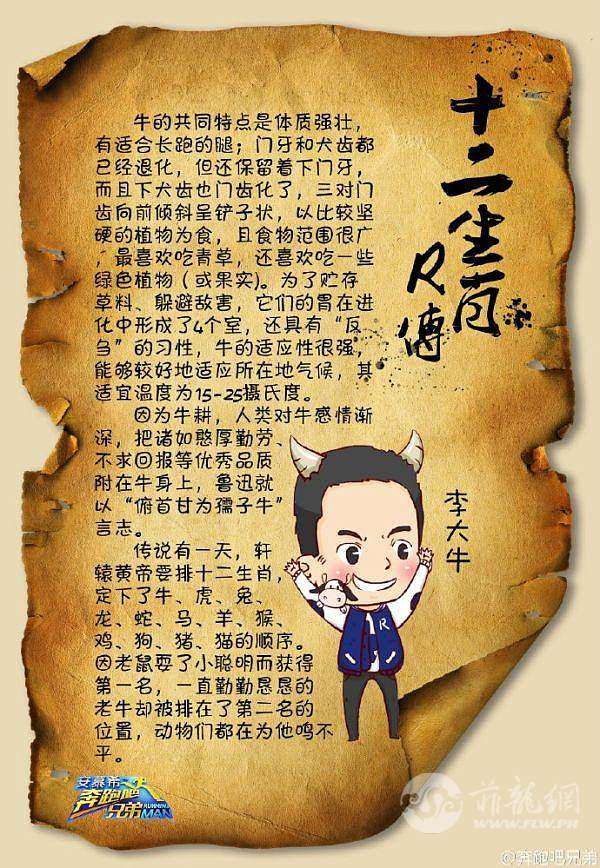 十二生肖
R傳
牛的共同特点是体质强壮，
有适合长跑的腿；门牙和犬齿都
已经退化，但还保留着下门牙，
而且下犬齿也门齿化了，三对门
齿向前倾斜呈铲子状，以比较坚
硬的植物为食，且食物范围很广
，最喜欢吃青草，还喜欢吃一些
绿色植物（或果实）。为了贮存
草料、躲避敌害，它们的胃在进
化中形成了4个室，还具有“反
刍”的习性，牛的适应性很强，
能够较好地适应所在地气候，其
适宜温度为15-25摄氏度。
因为牛耕，人类对牛感情渐
深，把诸如憨厚勤劳、
不求回报等优秀品质
附在牛身上，鲁迅就
以“俯首甘为孺子牛”
言志。
传说有一天，轩
辕黄帝要排十二生肖，
定下了牛、虎、兔、
龙、蛇、马、羊、猴、
鸡、狗、猪、猫的顺序。
因老鼠耍了小聪明而获得
第一名，一直勤勤恳恳的
老牛却被排在了第二名的
位置，动物们都在为他鸣不
平。
李大牛
R
安慕希
奔跑吧
兄弟
RUNNING
MAN
菲龍網
WWW.FLW.PH
@奔跑吧兄弟